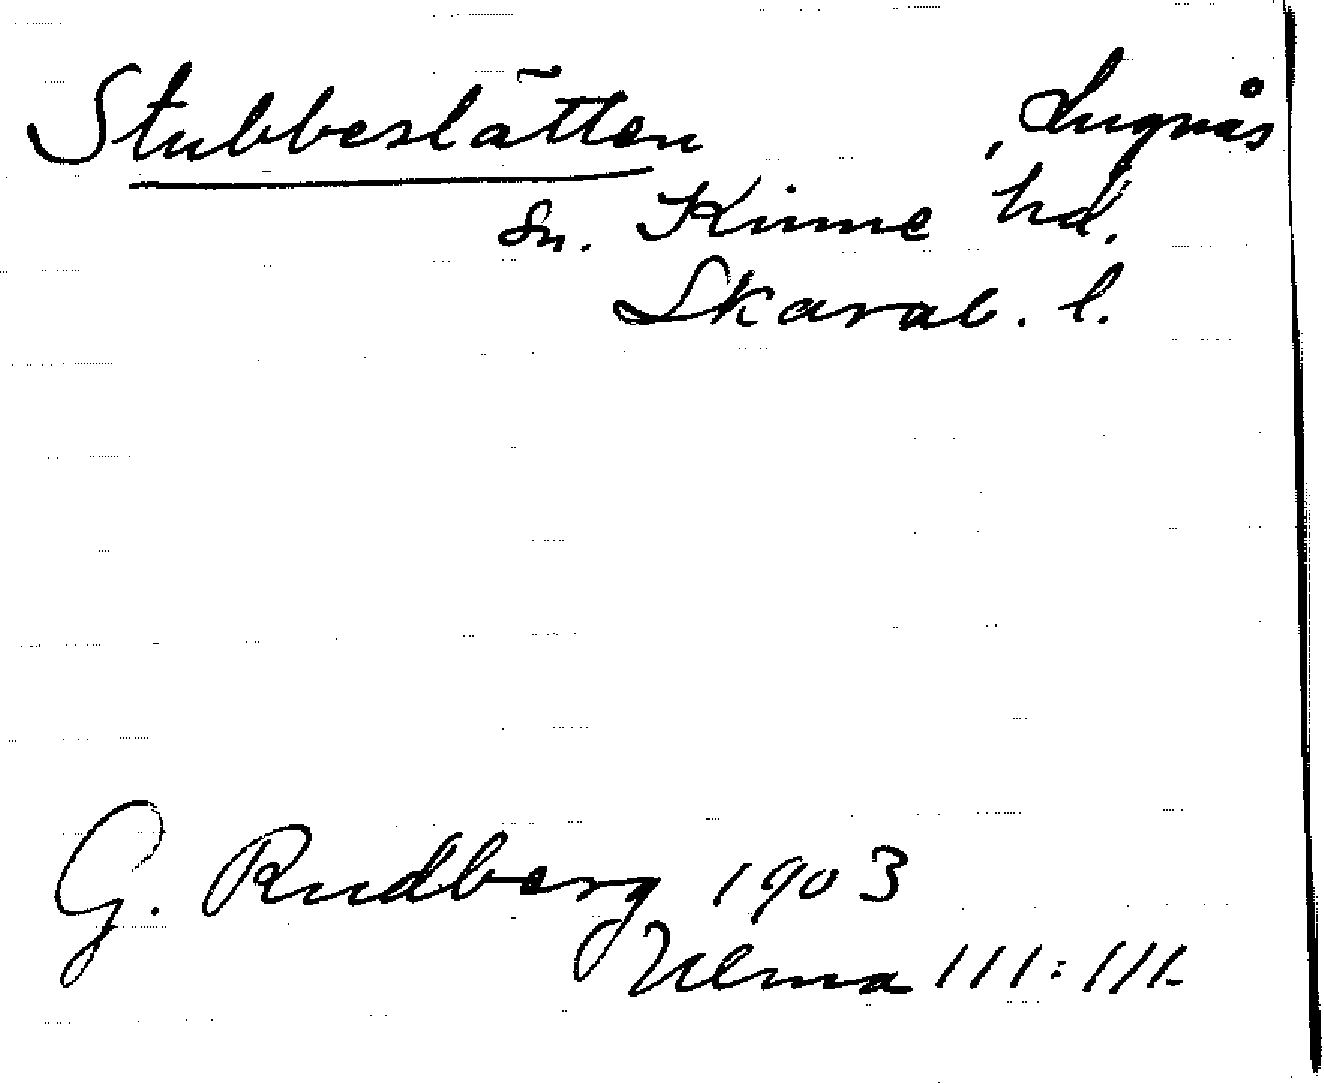 Stubbeslätten , Lugnås
sn. Kinne hd.
Skarab. l.
G. Rudberg 1903
Ulma 111:111.